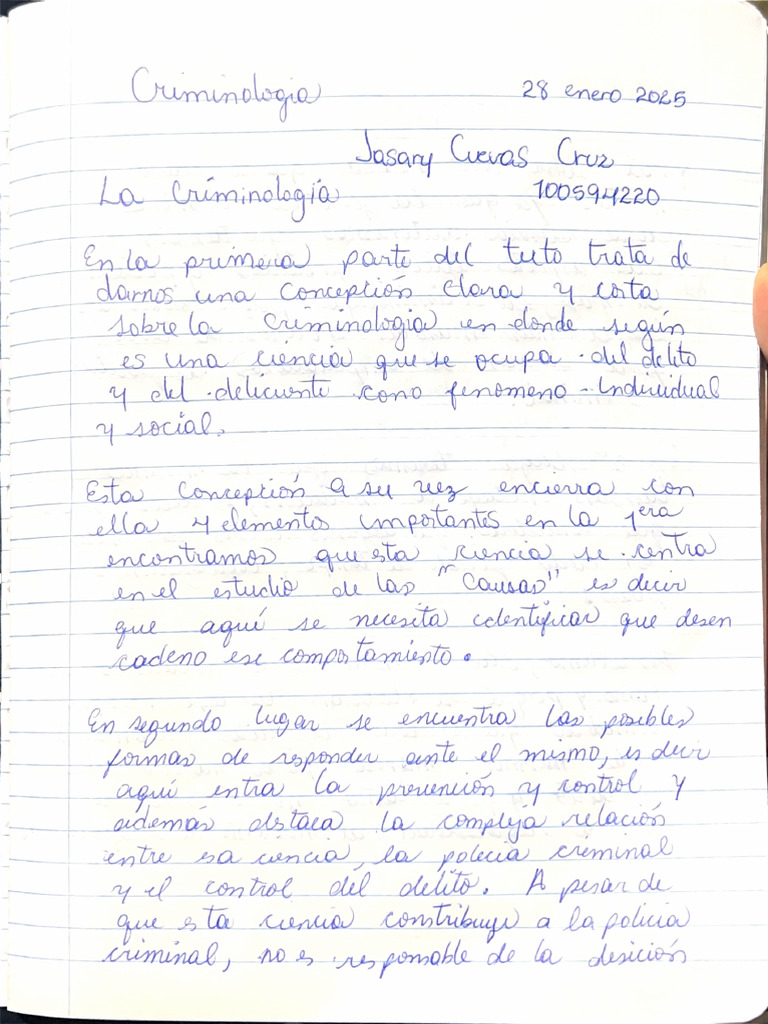 Criminologia
28 enero 2025
Jasary Cuevas Cruz
La Criminología
100594220
En la primera parte del texto trata de
darnos una concepción clara y corta
sobre la criminologia en donde según
es una ciencia que se ocupa del delito
y del delicuente como fenomeno individual
y social.
Esta concepción a su vez encierra con
ella 4 elementos importantes en la 1era
encontramos que esta ciencia se centra
en el estudio de las "causas" es decir
que aquí se necesita identificar que desen
cadeno ese comportamiento.
En segundo lugar se encuentra las posibles
formas de responder ante el mismo, es decir
aquí entra la prevención y control y
además destaca la compleja relación
entre esa ciencia, la policia criminal
y el control del delito. A pesar de
que esta ciencia constribuye a la policia
criminal, no es responsable de la desición